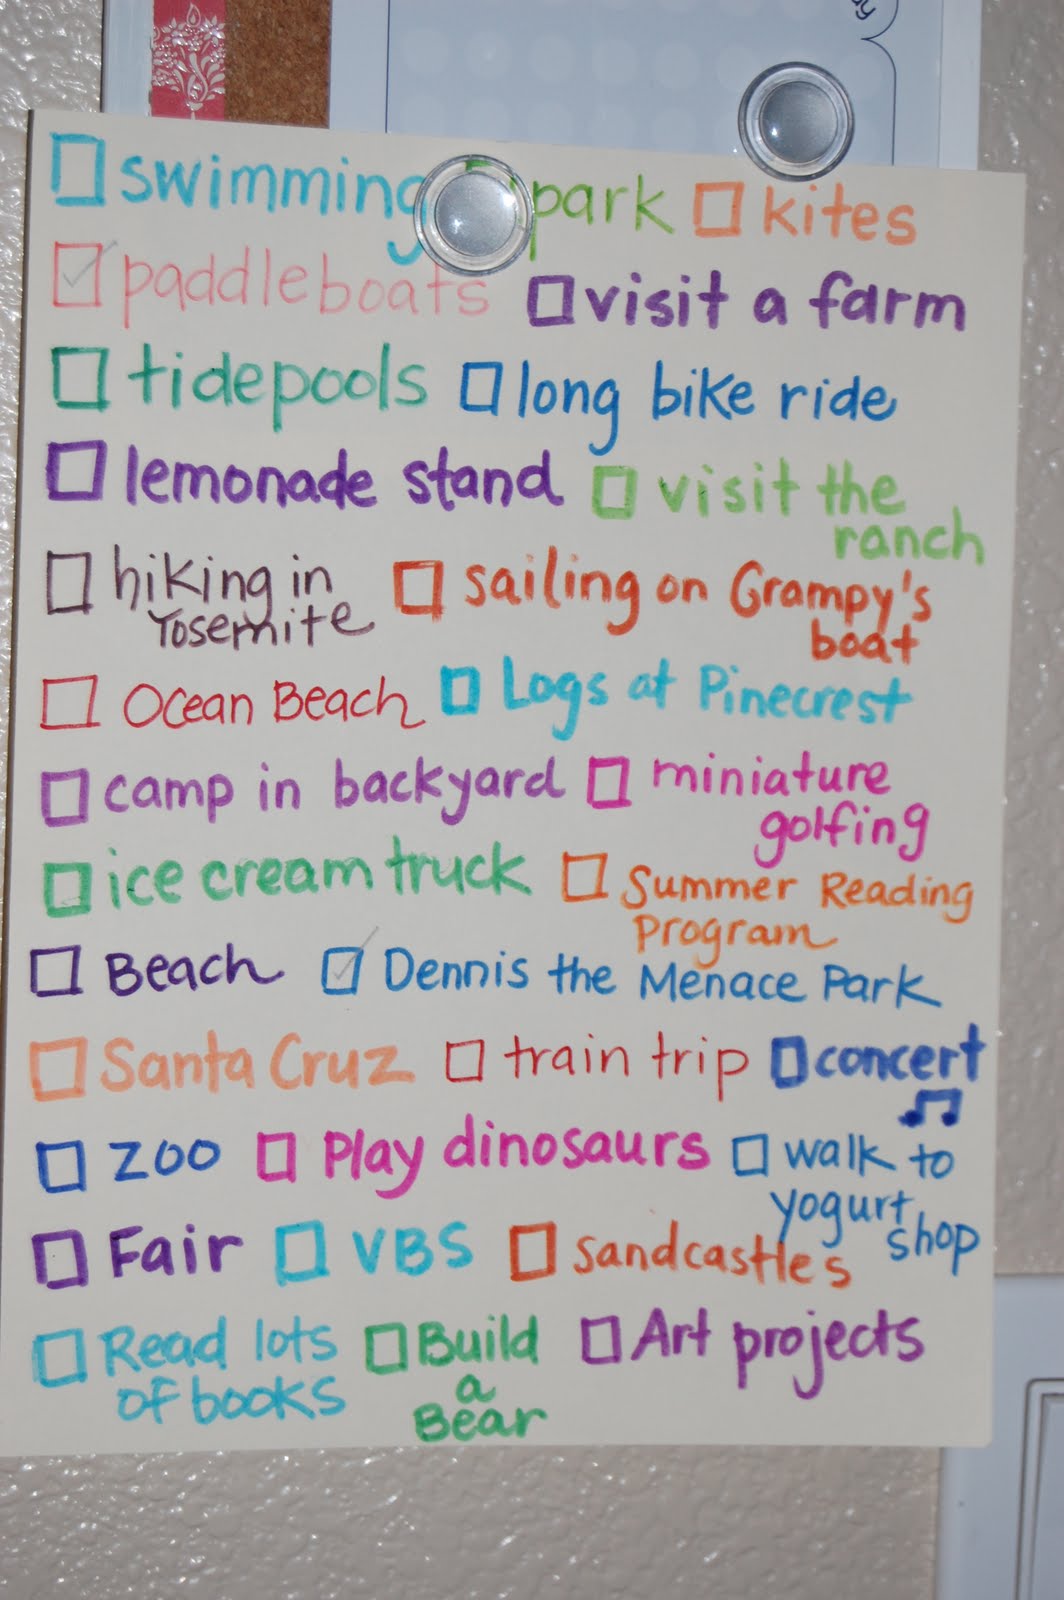 ☐ swimming park ☐ kites
☑ paddleboats ☐ visit a farm
☐ tidepools ☐ long bike ride
☐ lemonade stand ☐ visit the
ranch
☐ hiking in
Yosemite
☐ sailing on Grampy's
boat
☐ Ocean Beach ☐ Logs at Pinecrest
☐ camp in backyard ☐ miniature
golfing
☐ ice cream truck ☐ Summer Reading
Program
☐ Beach ☑ Dennis the Menace Park
☐ Santa Cruz ☐ train trip ☐ concert
☐ ZOO ☐ Play dinosaurs ☐ walk to
yogurt
shop
☐ Fair ☐ VBS ☐ sandcastles
☐ Read lots
of books
☐ Build
a
Bear
☐ Art projects